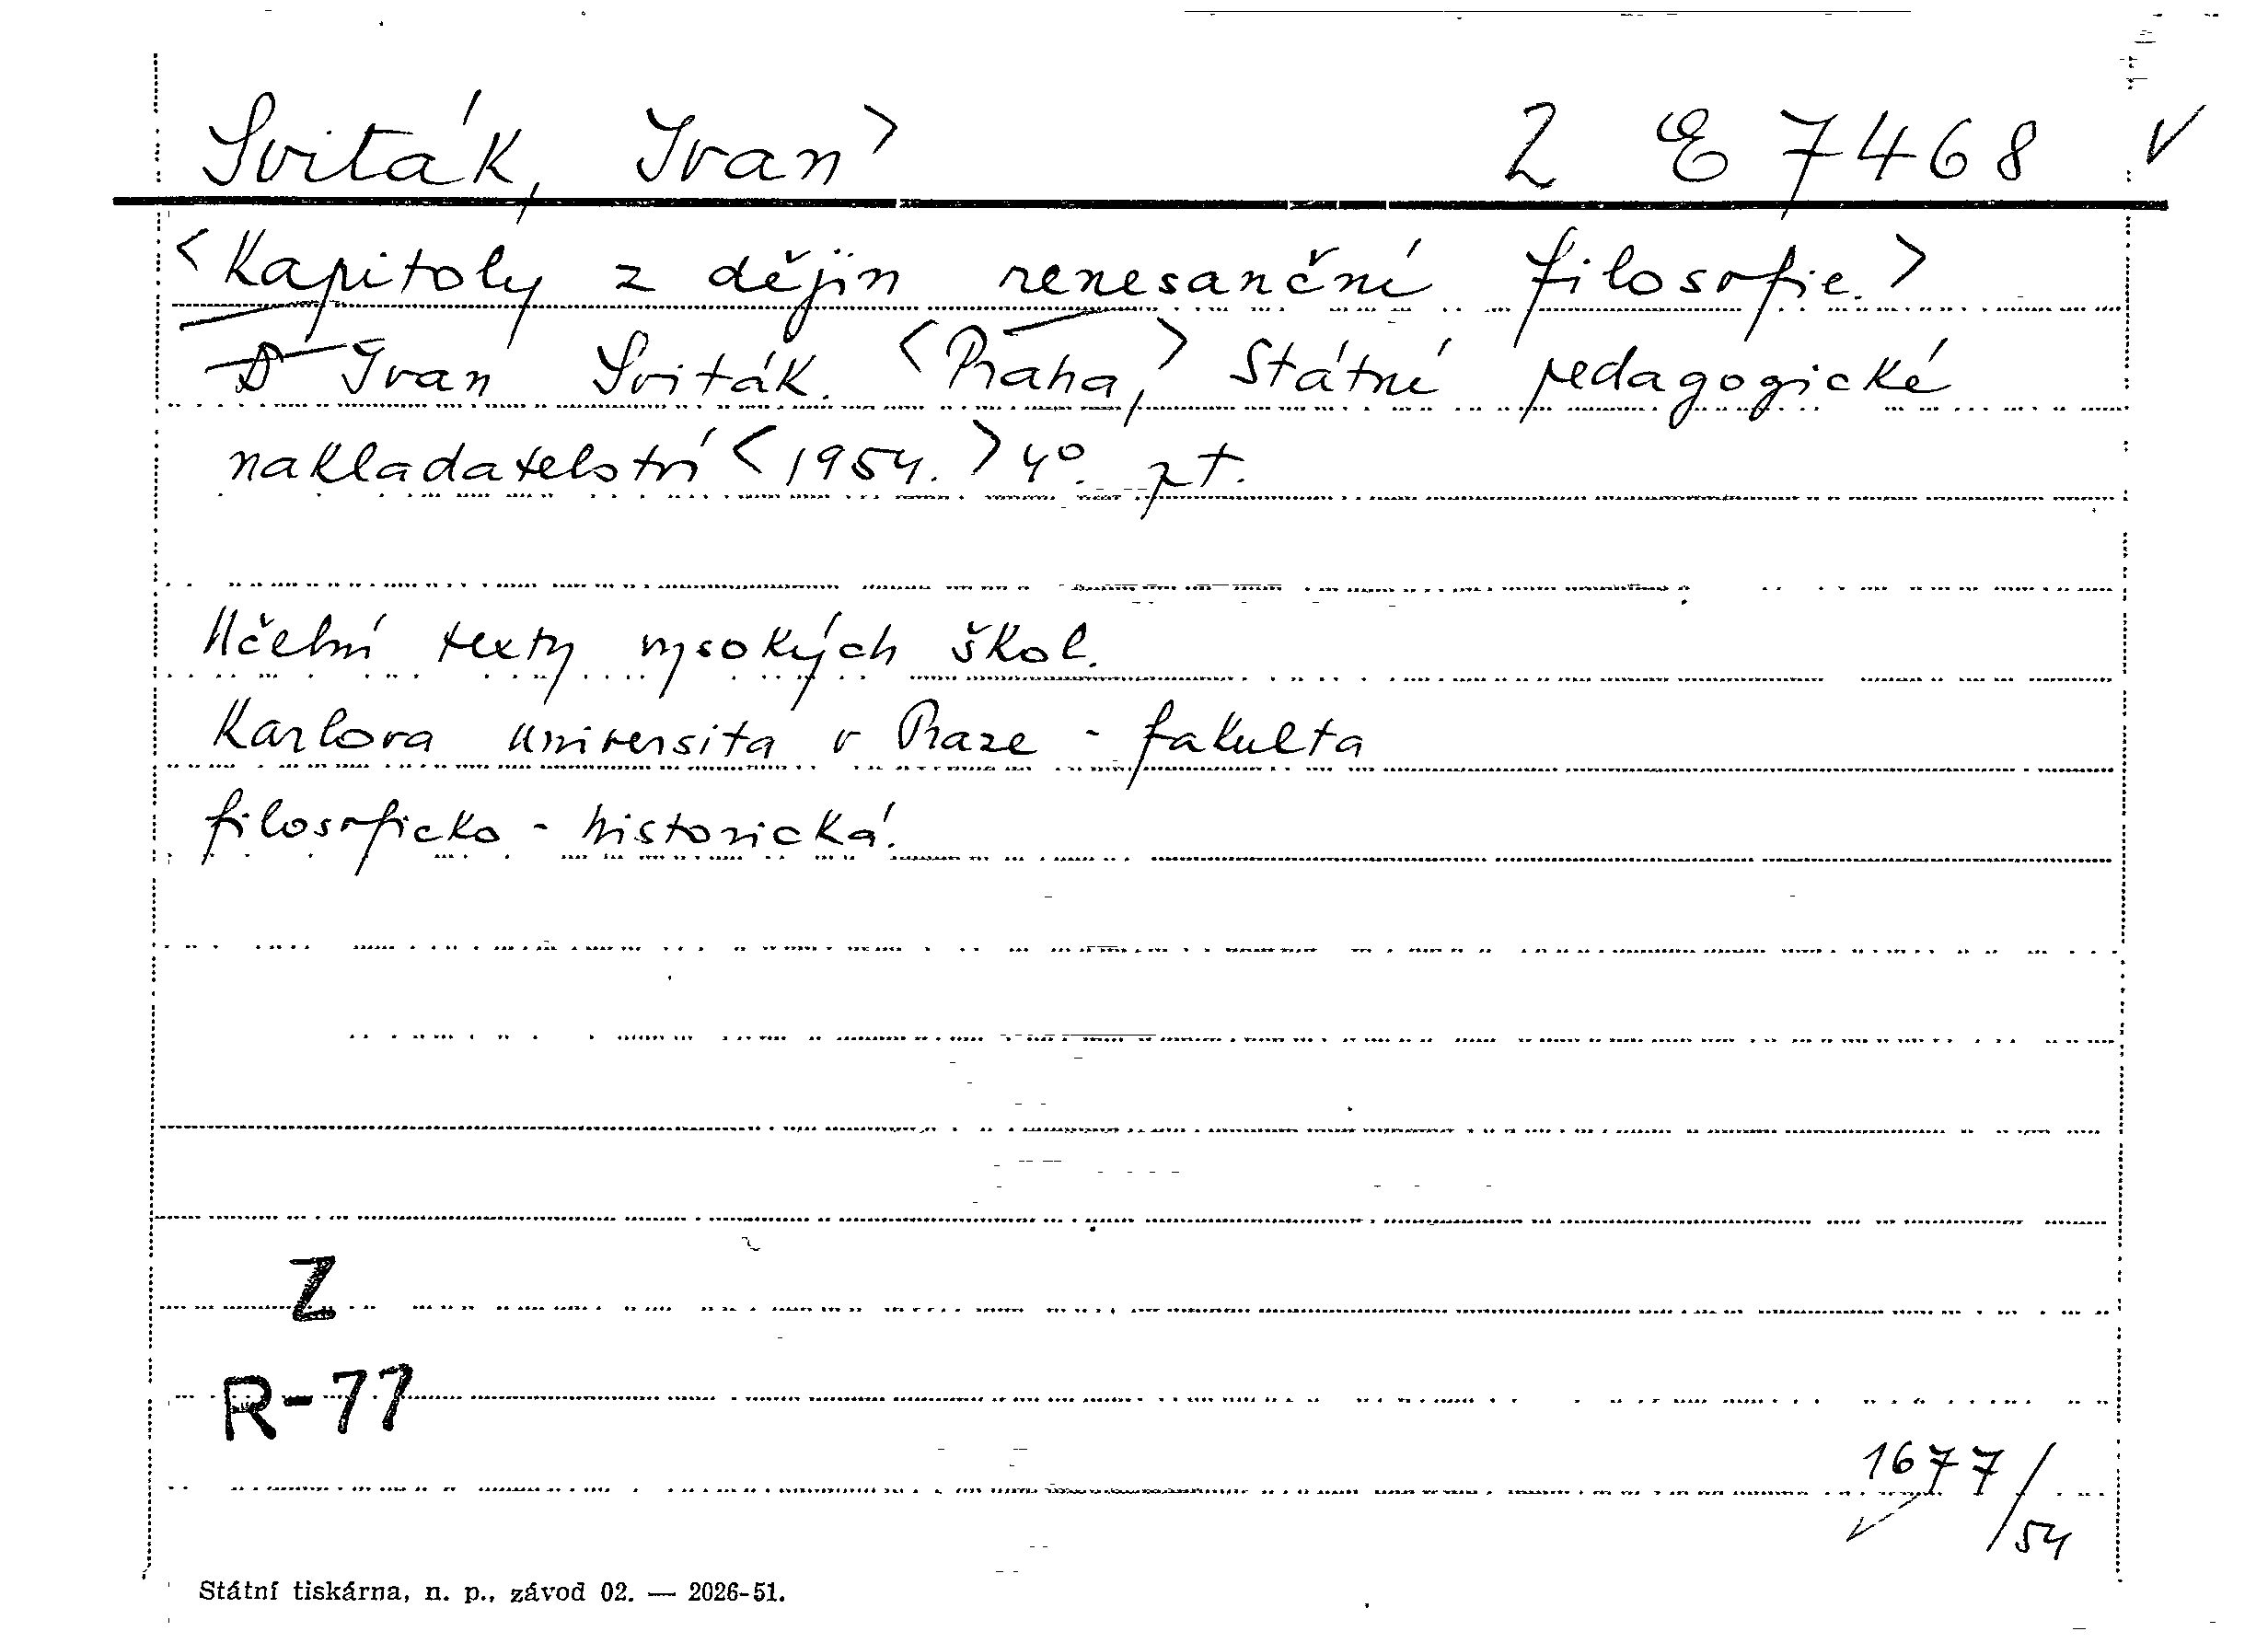 Sviták, Ivan > 2 E 7468 V
<Kapitoly z dějin renesanční filosofie.>
D Ivan Sviták. <Praha,> Státní pedagogické
nakladatelství <1954.> 4°. pt.
Učební texty vysokých škol.
Karlova universita v Praze - fakulta
filosoficko - historická.
Z
R-77
1677/54
Státní tiskárna, n. p., závod 02. — 2026-51.